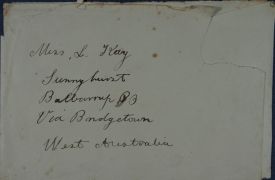 Miss L. Kay
Sunnyhurst
Balbarrup PB
Via Bridgetown
West Australia